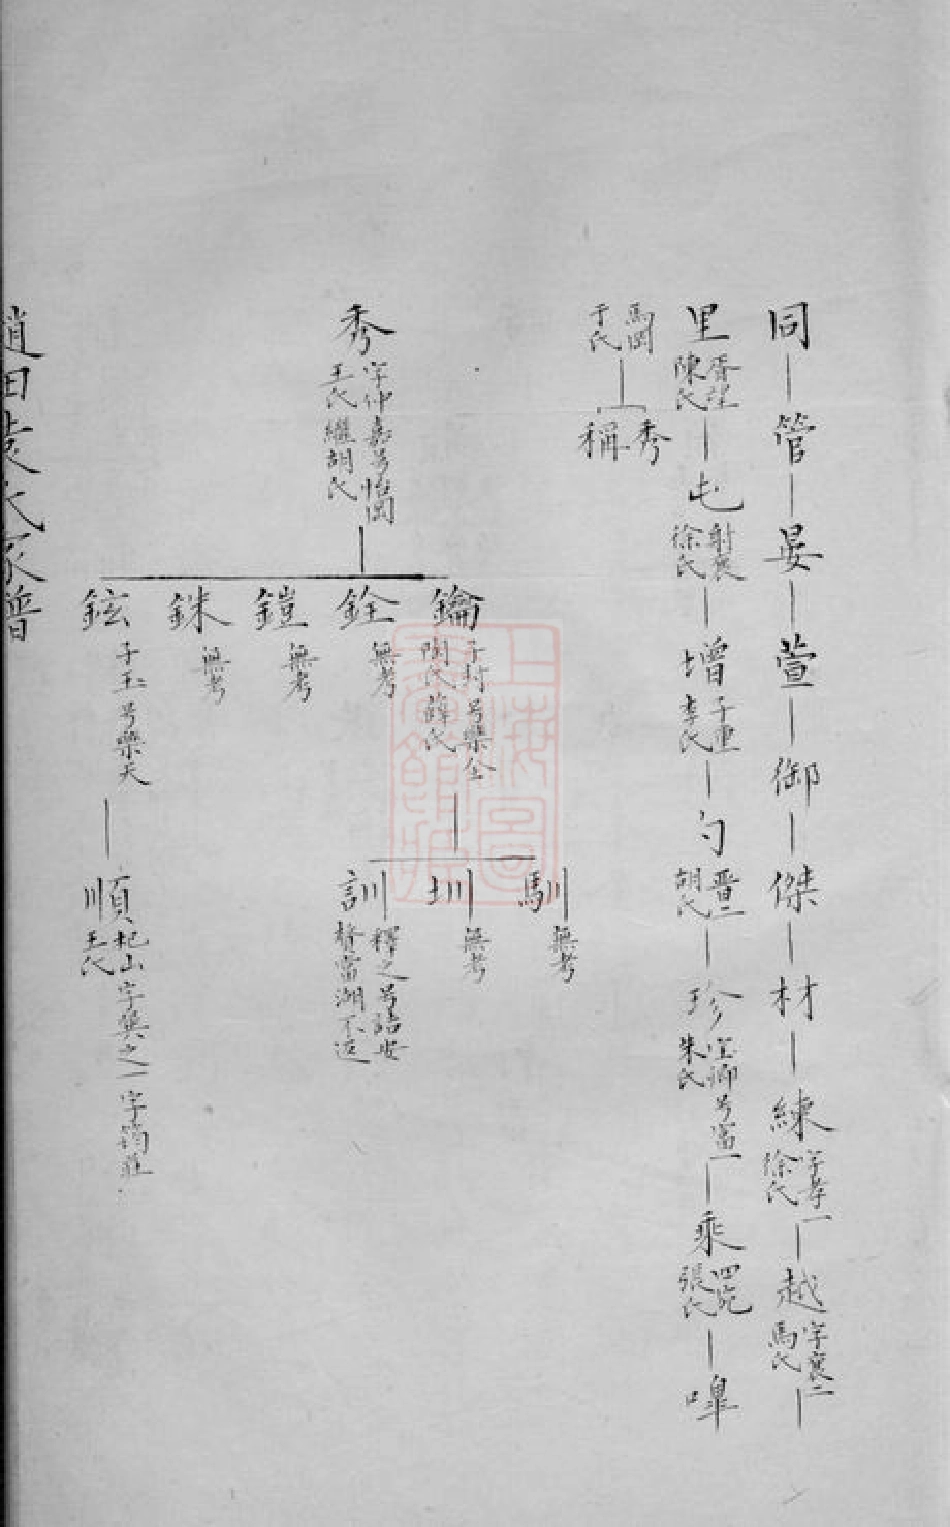 同 管 晏 萱 御 傑 材 練 字孝一 徐氏 越 字襄二 馬氏
里 胥望 陳氏 屯 射襄 徐氏 增 子重 李氏 勺 晋二 胡氏 珍 朱氏 号富一 乘 張氏 嘷
馬岡 于氏
秀
稱
秀 字仲嘉号怡岡 王氏繼胡氏
鑰 子封号樂全 陶氏薛氏
銓 無考
鎧 無考
銖 無考
鉉 子玉号樂天
馴 無考
圳 無考
訓 釋之号 贅當湖不返
順 杞山字巽之一字筠莊 王氏
趙田袁氏家譜
上海圖書館藏